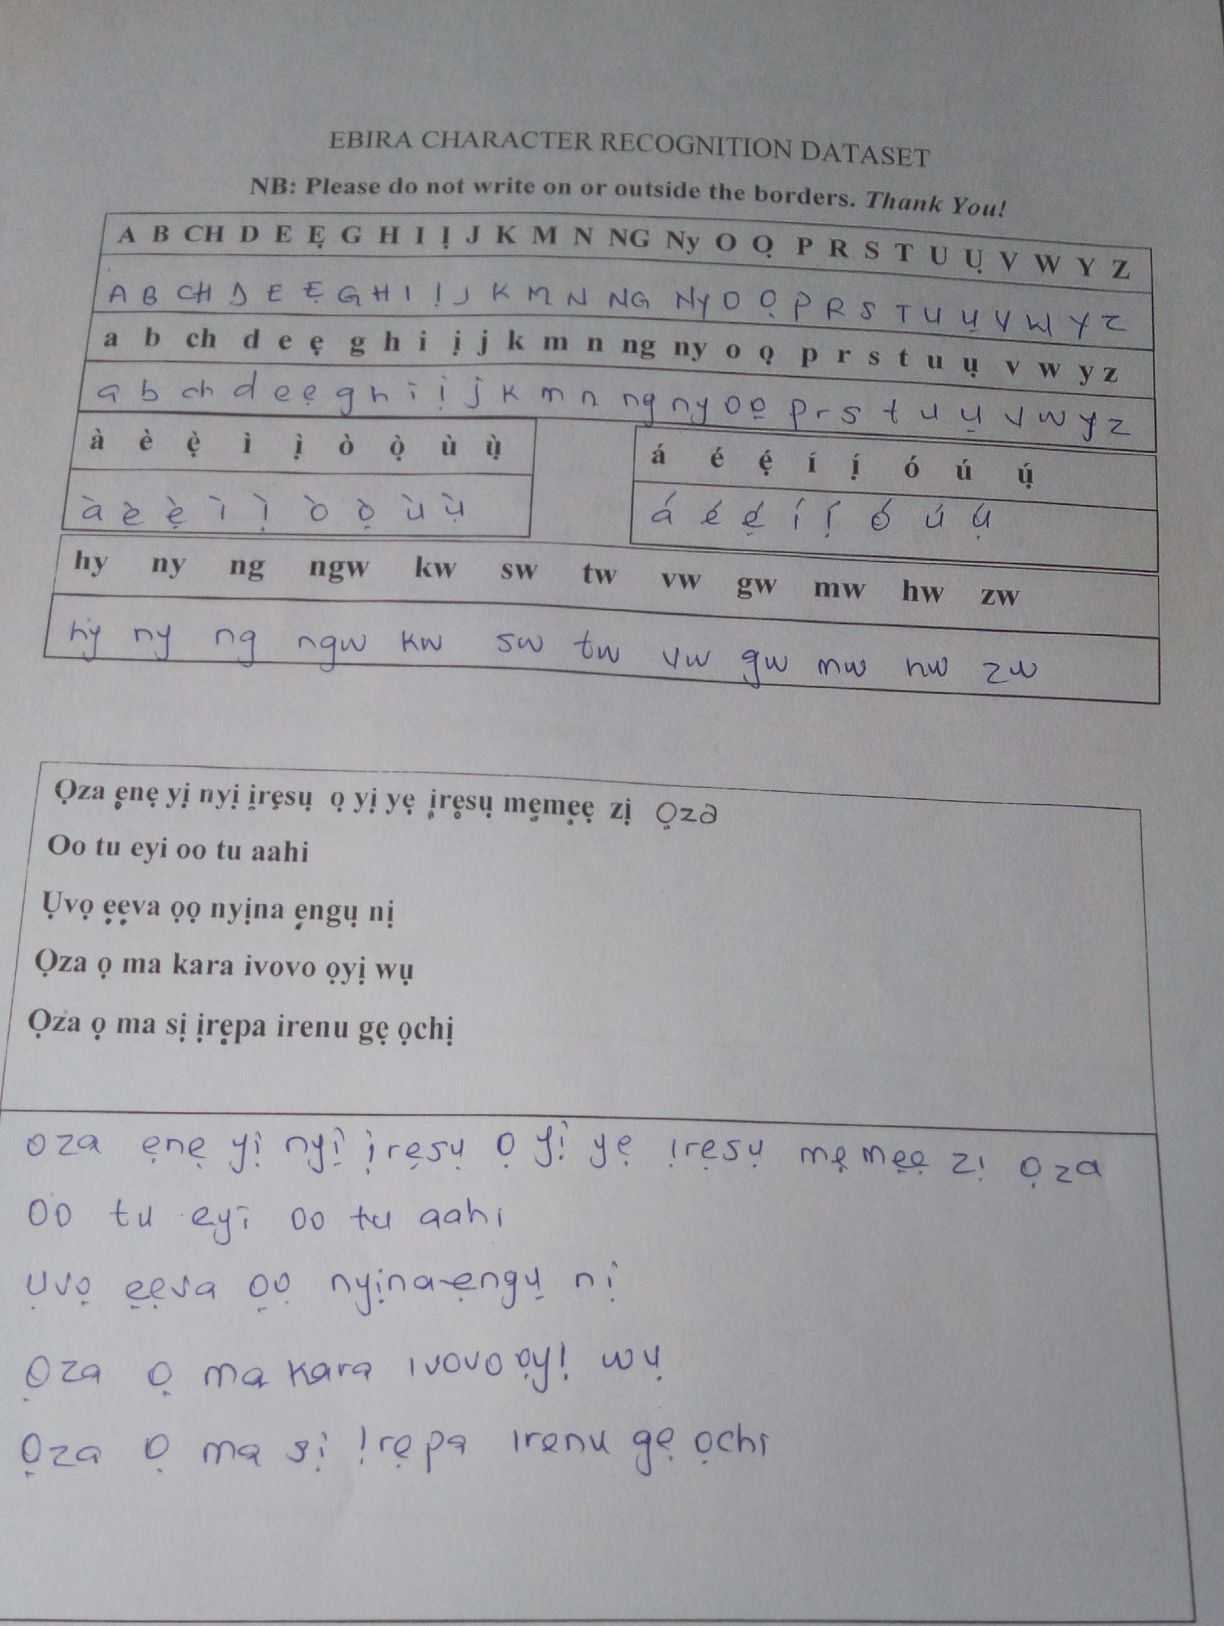 EBIRA CHARACTER RECOGNITION DATASET
NB: Please do not write on or outside the borders. Thank You!
A B CH D E Ẹ G H I Ị J K M N NG Ny O Ọ P R S T U Ụ V W Y Z
A B CH D E Ẹ G H I Ị J K M N NG Ny O Ọ P R S T U Ụ V W Y Z
a b ch d e ẹ g h i ị j k m n ng ny o ọ p r s t u ụ v w y z
a b ch d e ẹ g h i ị j k m n ng ny o ọ p r s t u ụ v w y z
à è ẹ̀ ì ị̀ ò ọ̀ ù ụ̀
á é ẹ́ í ị́ ó ú ụ́
à è ẹ̀ ì ị̀ ò ọ̀ ù ụ̀
á é ẹ́ í ị́ ó ú ụ́
hy ny ng ngw kw sw tw vw gw mw hw zw
hy ny ng ngw kw sw tw vw gw mw hw zw
Ọza ẹnẹ yị nyị ịrẹsụ ọ yị yẹ ịrẹsụ mẹmẹẹ zị Ọza
Oo tu eyi oo tu aahi
Ụvọ ẹẹva ọọ nyịna ẹngụ nị
Ọza ọ ma kara ivovo ọyị wụ
Ọza ọ ma sị ịrẹpa irenu gẹ ọchị
oza ẹnẹ yị nyị ịrẹsụ ọ yị yẹ ịrẹsụ mẹmẹẹ zị ọza
Oo tu eyi oo tu aahi
Ụvọ ẹẹva ọọ nyịna ẹngụ nị
Ọza ọ ma kara ivovo ọyị wụ
Ọza ọ ma sị ịrẹpa irenu gẹ ọchi